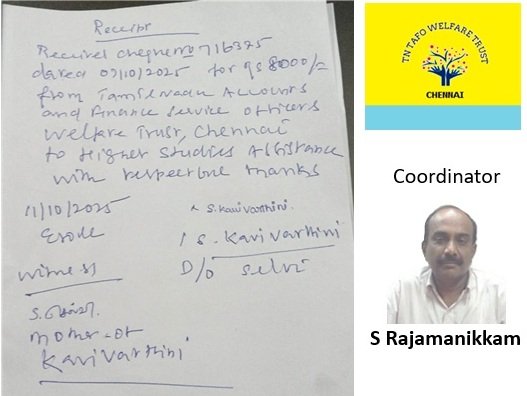 Receipt
Received cheque no 716375
dated 07/10/2025 for Rs 8000/=
from Tamilnadu Accounts
and Finance Service officers
Welfare Trust, Chennai
to Higher Studies Assistance
with respectful thanks
11/10/2025
Erode
S. Kavivarthini.
S. Kavivarthini
D/o Selvi
witness
S. செல்வி.
mother of
Kavivarthini
TN TAFO WELFARE TRUST
CHENNAI
Coordinator
S Rajamanikkam